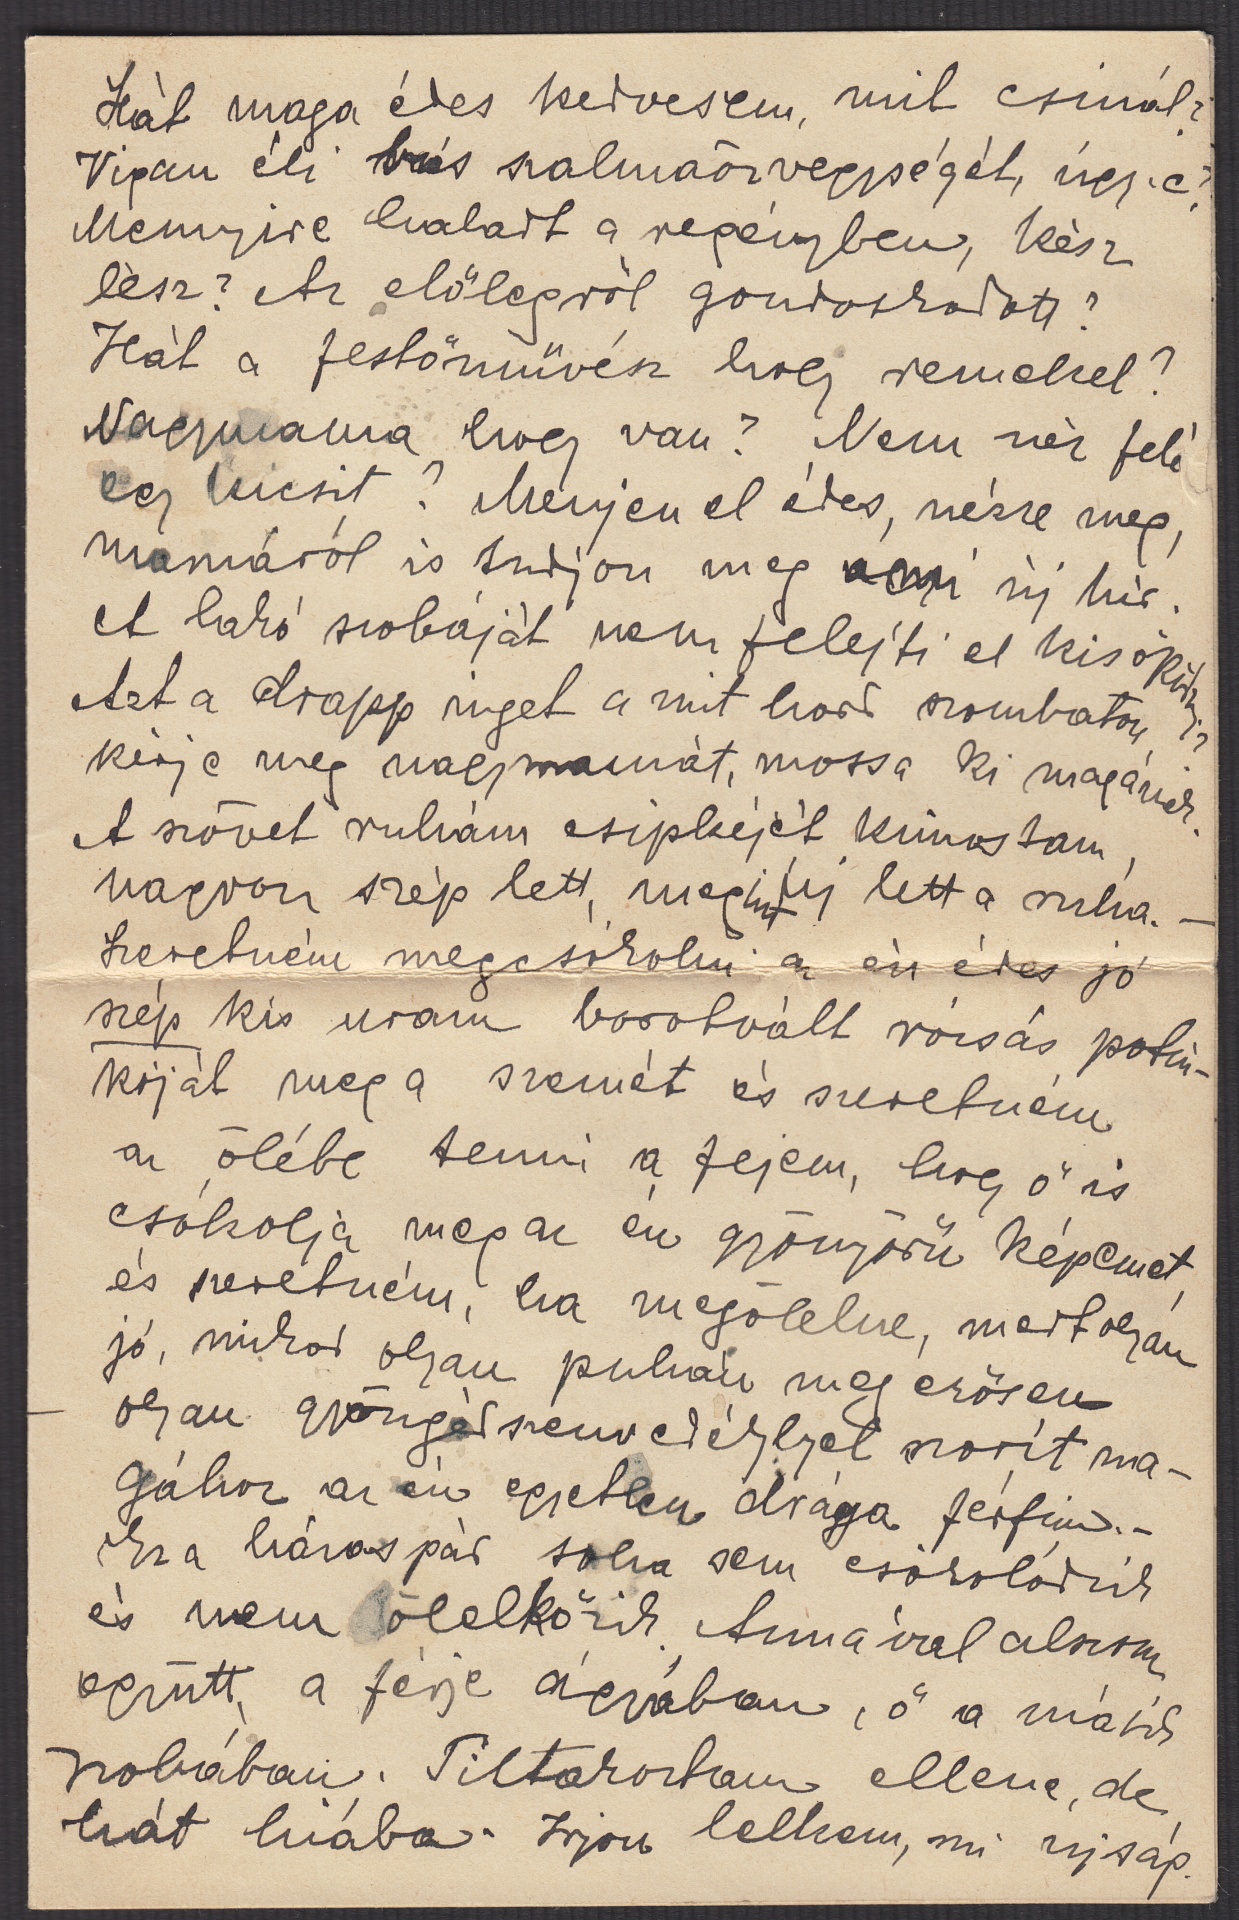 Hát maga édes kedvesem, mit csinál?
Vigan éli bús szalmaözvegységét, úgy-e?
Mennyire haladt a regényben, kész
lesz? Az előlegről gondoskodott?
Hát a festőművész hogy remekel?
Nagymama hogy van? Nem néz felé
egy kicsit? Menjen el édes, nézze meg,
mamáról is tudjon meg ami új hír.
A lakó szobáját nem felejti el kisöpörni?
Azt a drapp inget a mit hord szombaton,
kérje meg nagymamát, mossa ki magának.
A szövet ruhám csipkéjét kimostam,
nagyon szép lett, megint új lett a ruha. —
Szeretném megcsókolni az én édes jó
szép kis uram borotvált rózsás
meg a szemét és szeretném
az ölébe tenni a fejem, hogy ő is
csókolja meg az én gyönyörű képemet,
és szeretném, ha megölelne, mert olyan
jó, mikor olyan puhán meg erősen
olyan gyöngéd szenvedéllyel szorít ma-
gához az én egyetlen drága férfim. —
Ez a házaspár soha sem csókolódzik
és nem ölelkőzik. Annával alszom
együtt, a férje ágyában, ő a másik
szobában. Tiltakoztam ellene, de
hát hiába. Irjon lelkem, mi ujság.